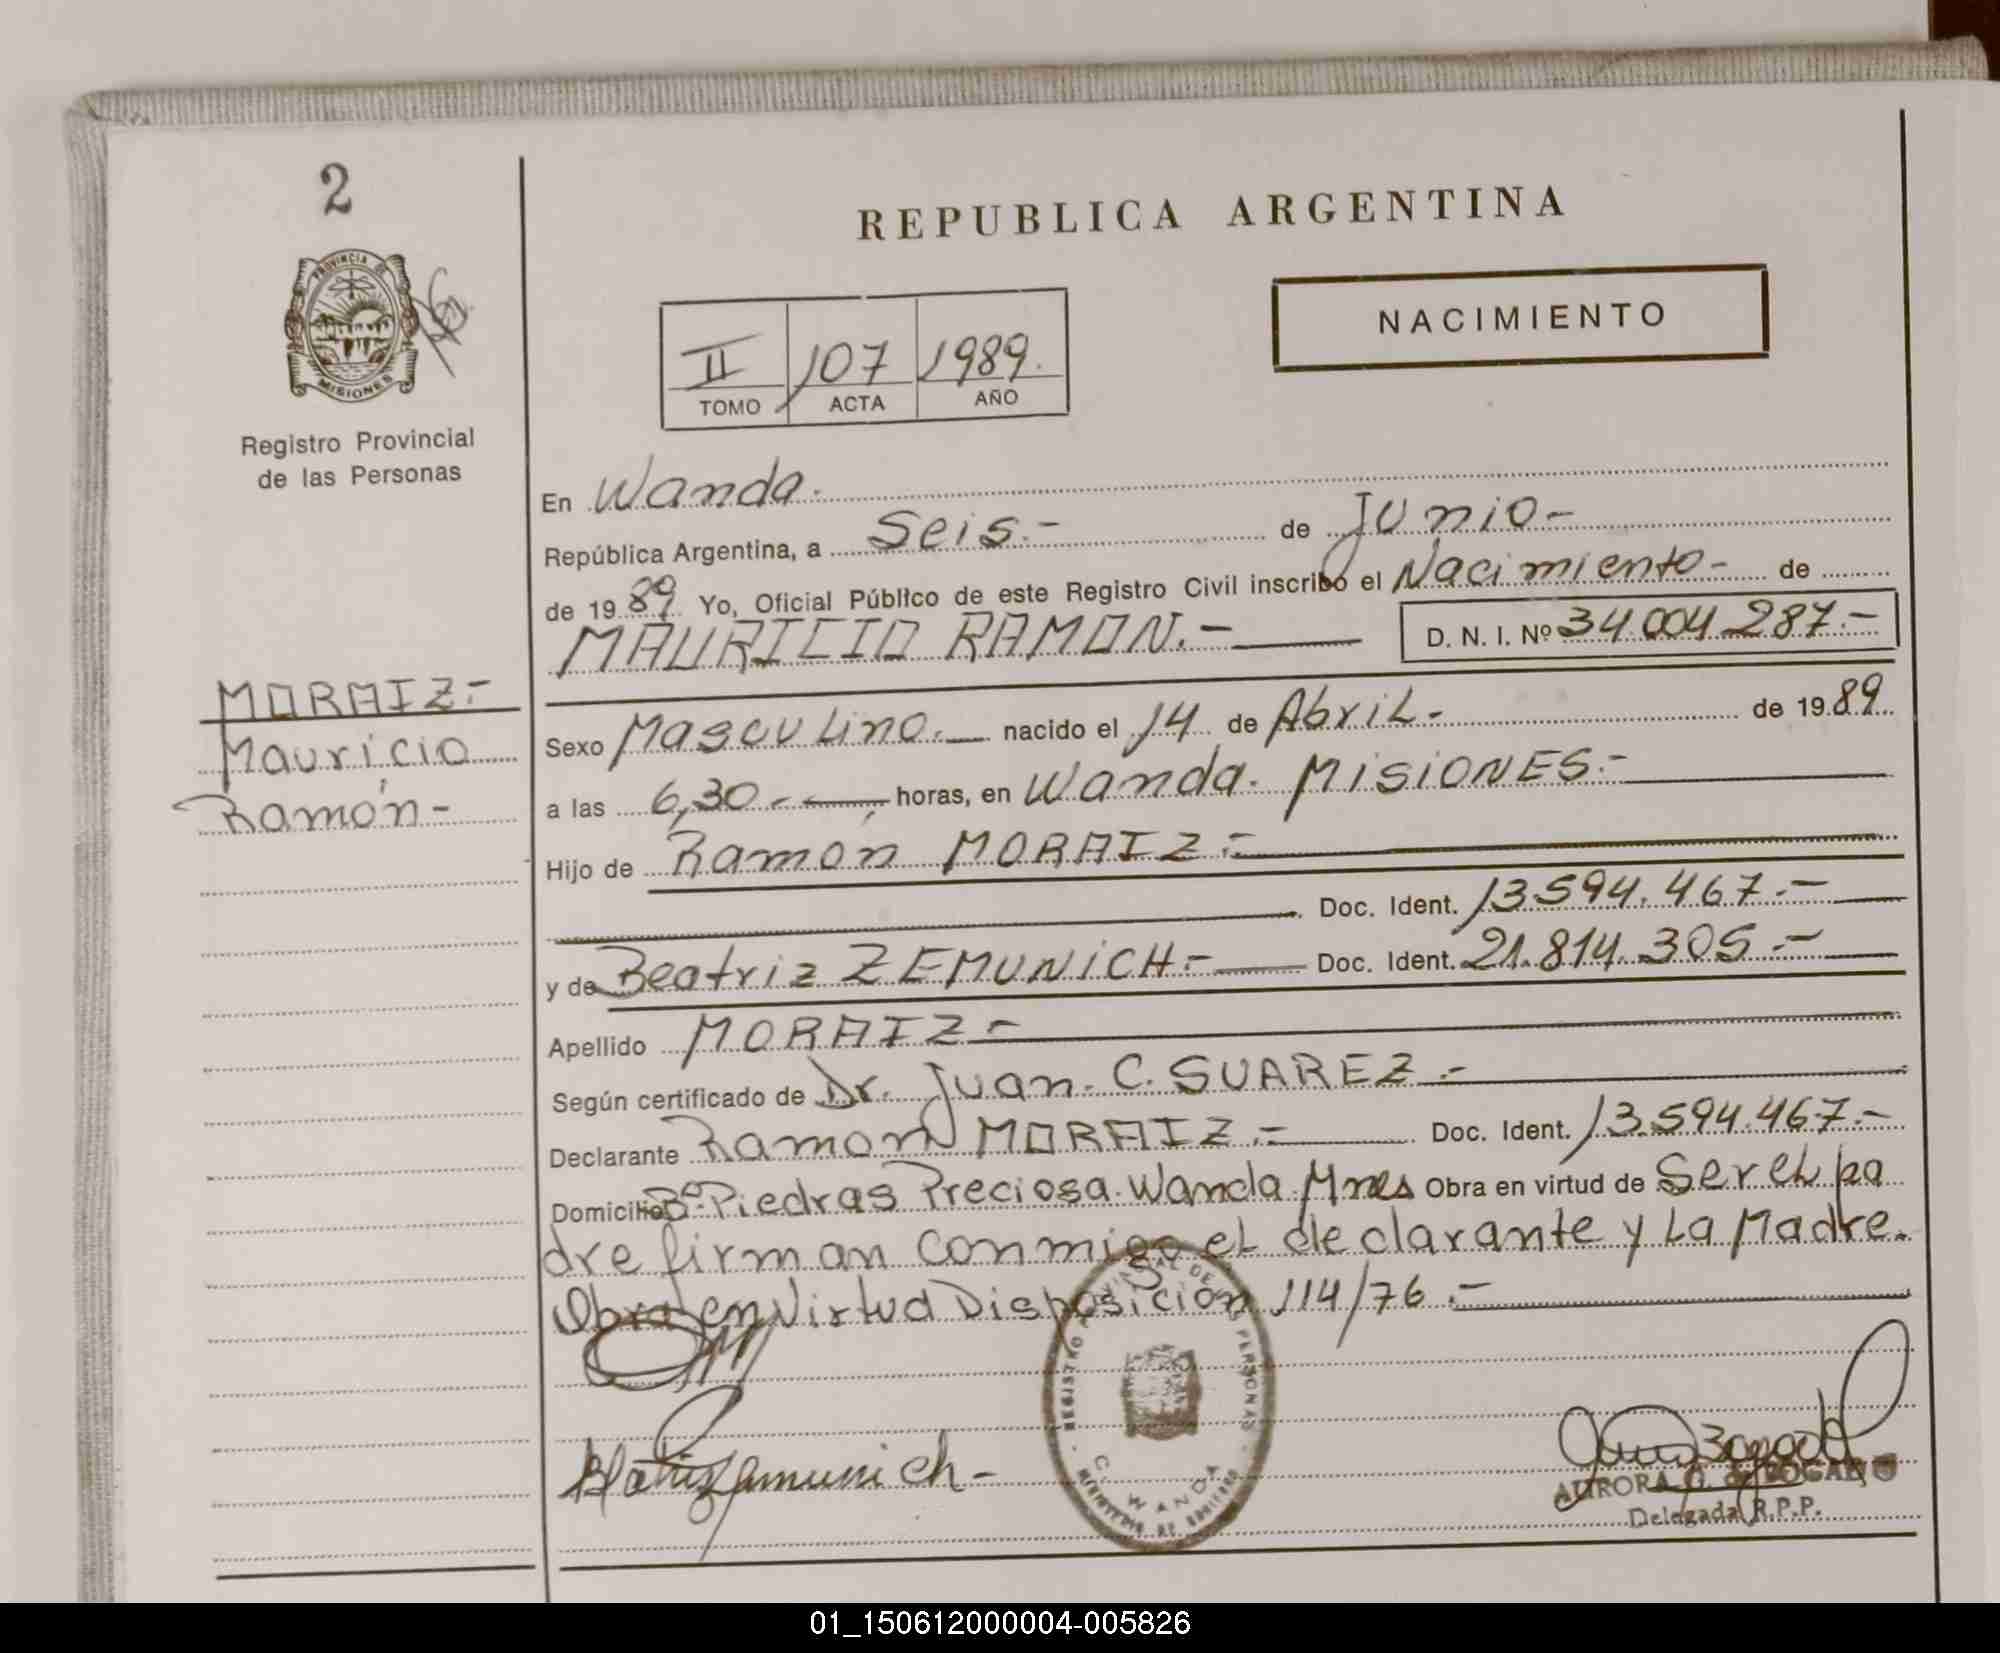 2
PROVINCIA DE
MISIONES
Registro Provincial
de las Personas
MORAIZ.-
Mauricio
Ramón-
REPUBLICA ARGENTINA
NACIMIENTO
II 107 1989.
TOMO ACTA AÑO
En Wanda.
República Argentina, a Seis.- de Junio-
de 1989 Yo, Oficial Público de este Registro Civil inscribo el Nacimiento- de
MAURICIO RAMON.- D. N. I. Nº 34.004.287.-
Sexo Masculino.- nacido el 14 de Abril.- de 1989
a las 6,30.- horas, en Wanda. MISIONES.-
Hijo de Ramón MORAIZ.-
Doc. Ident. 13.594.467.-
y de Beatriz ZEMUNICH.- Doc. Ident. 21.814.305.-
Apellido MORAIZ-
Según certificado de Dr. Juan. C. SUAREZ.-
Declarante Ramon MORAIZ.- Doc. Ident. 13.594.467.-
Domicilio Bº Piedras Preciosa. Wanda. Mnes Obra en virtud de Ser el pa
dre firman conmigo el declarante y La Madre.
Obra en Virtud Disposición 114/76.-
REGISTRO PROVINCIAL DE LAS PERSONAS
WANDA
MINISTERIO DE GOBIERNO
AURORA G. de BOGADO
Delegada R.P.P.
01_150612000004-005826